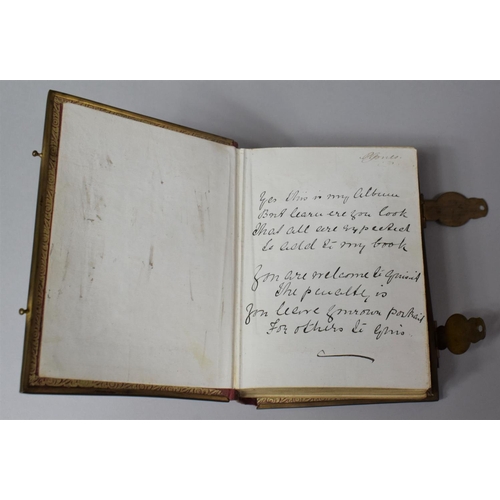 Yes this is my Album
But learn ere you look
That all are expected
To add to my book
You are welcome to quiz it
The penalty is
You leave your own portrait
For others to quiz